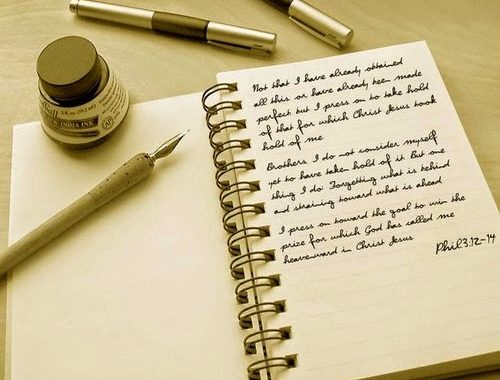 INDIA INK
Not that I have already obtained
all this or have already been made
perfect but I press on to take hold
of that for which Christ Jesus took
hold of me
Brothers I do not consider myself
yet to have taken hold of it But one
thing I do Forgetting what is behind
and straining toward what is ahead
I press on toward the goal to win the
prize for which God has called me
heavenward in Christ Jesus
Phil 3:12-14